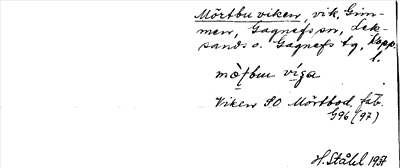 Mörtbuviken, vik, Gim-
men, Gagnefs sn, Lek-
sands o. Gagnefs tg, Kopp.
l.
mö̀ʈbu víga
Viken SO Mörtbod. fäb.
G96 (97)
H. Ståhl 1937